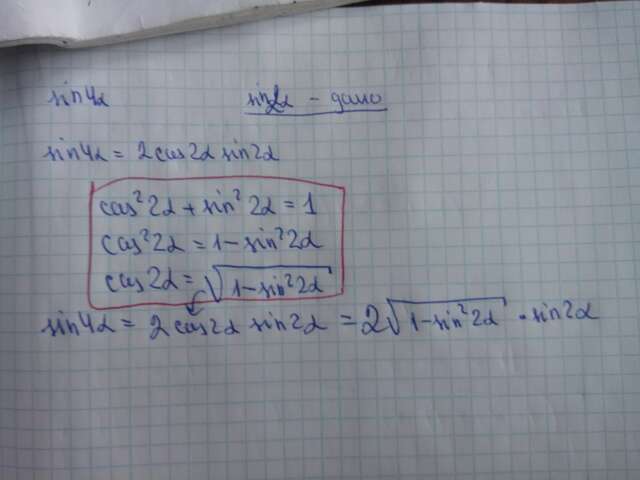 sin4α sin2α - дано
sin4α = 2cos2α sin2α
cos²2α + sin²2α = 1
cos²2α = 1 - sin²2α
cos2α = √(1 - sin²2α)
sin4α = 2cos2α sin2α = 2√(1 - sin²2α) · sin2α